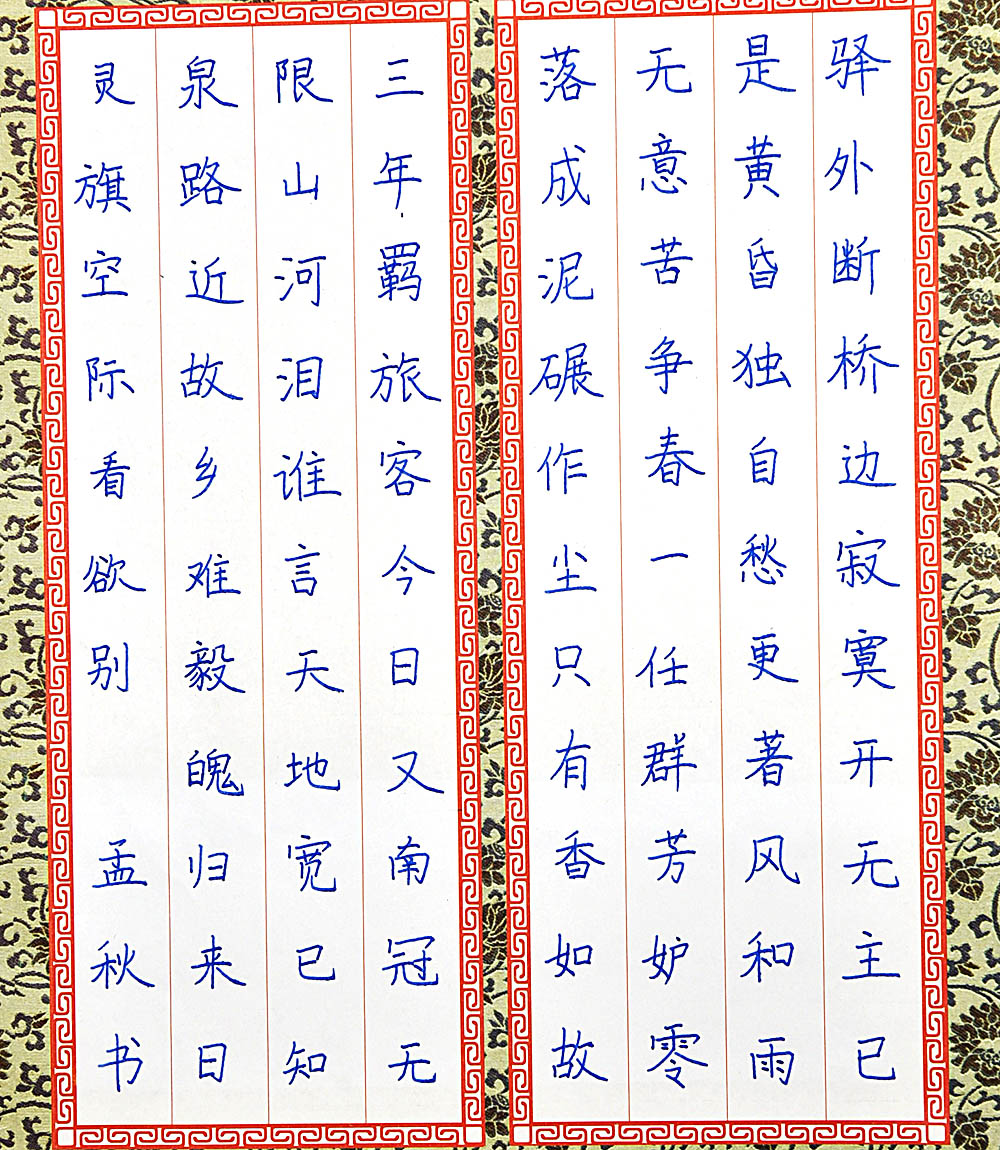 驿外断桥边寂寞开无主已
是黄昏独自愁更著风和雨
无意苦争春一任群芳妒零
落成泥碾作尘只有香如故
三年羁旅客今日又南冠无
限山河泪谁言天地宽已知
泉路近故乡难毅魄归来日
灵旗空际看欲别 孟秋书